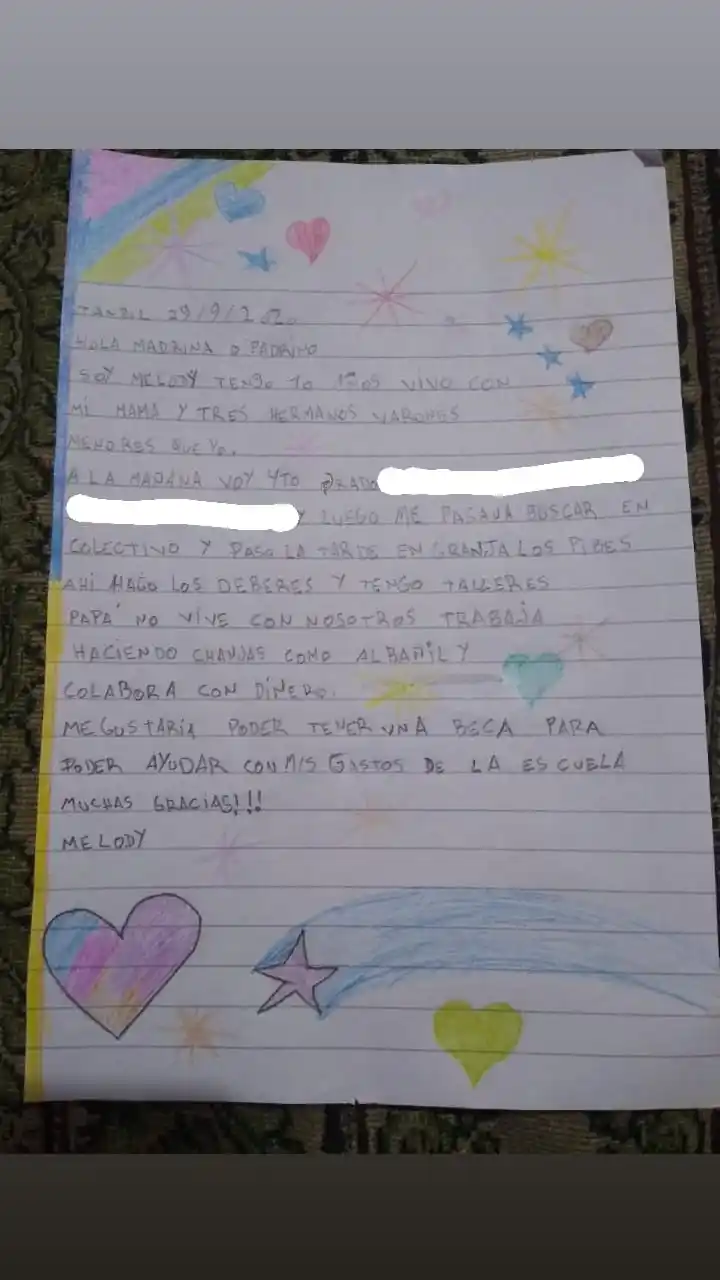 TANDIL 29/9/2020
HOLA MADRINA O PADRINO
SOY MELODY TENGO 10 AÑOS VIVO CON
MI MAMA Y TRES HERMANOS VARONES
MENORES QUE YO.
A LA MAÑANA VOY 4TO GRADO
Y LUEGO ME PASANA BUSCAR EN
COLECTIVO Y PASO LA TARDE EN GRANJA LOS PIBES
AHI HAGO LOS DEBERES Y TENGO TALLERES
PAPA NO VIVE CON NOSOTROS TRABAJA
HACIENDO CHANJAS COMO ALBAÑIL Y
COLABORA CON DINERO.
ME GUSTARIA PODER TENER UNA BECA PARA
PODER AYUDAR CON MIS GASTOS DE LA ESCUELA
MUCHAS GRACIAS!!!
MELODY